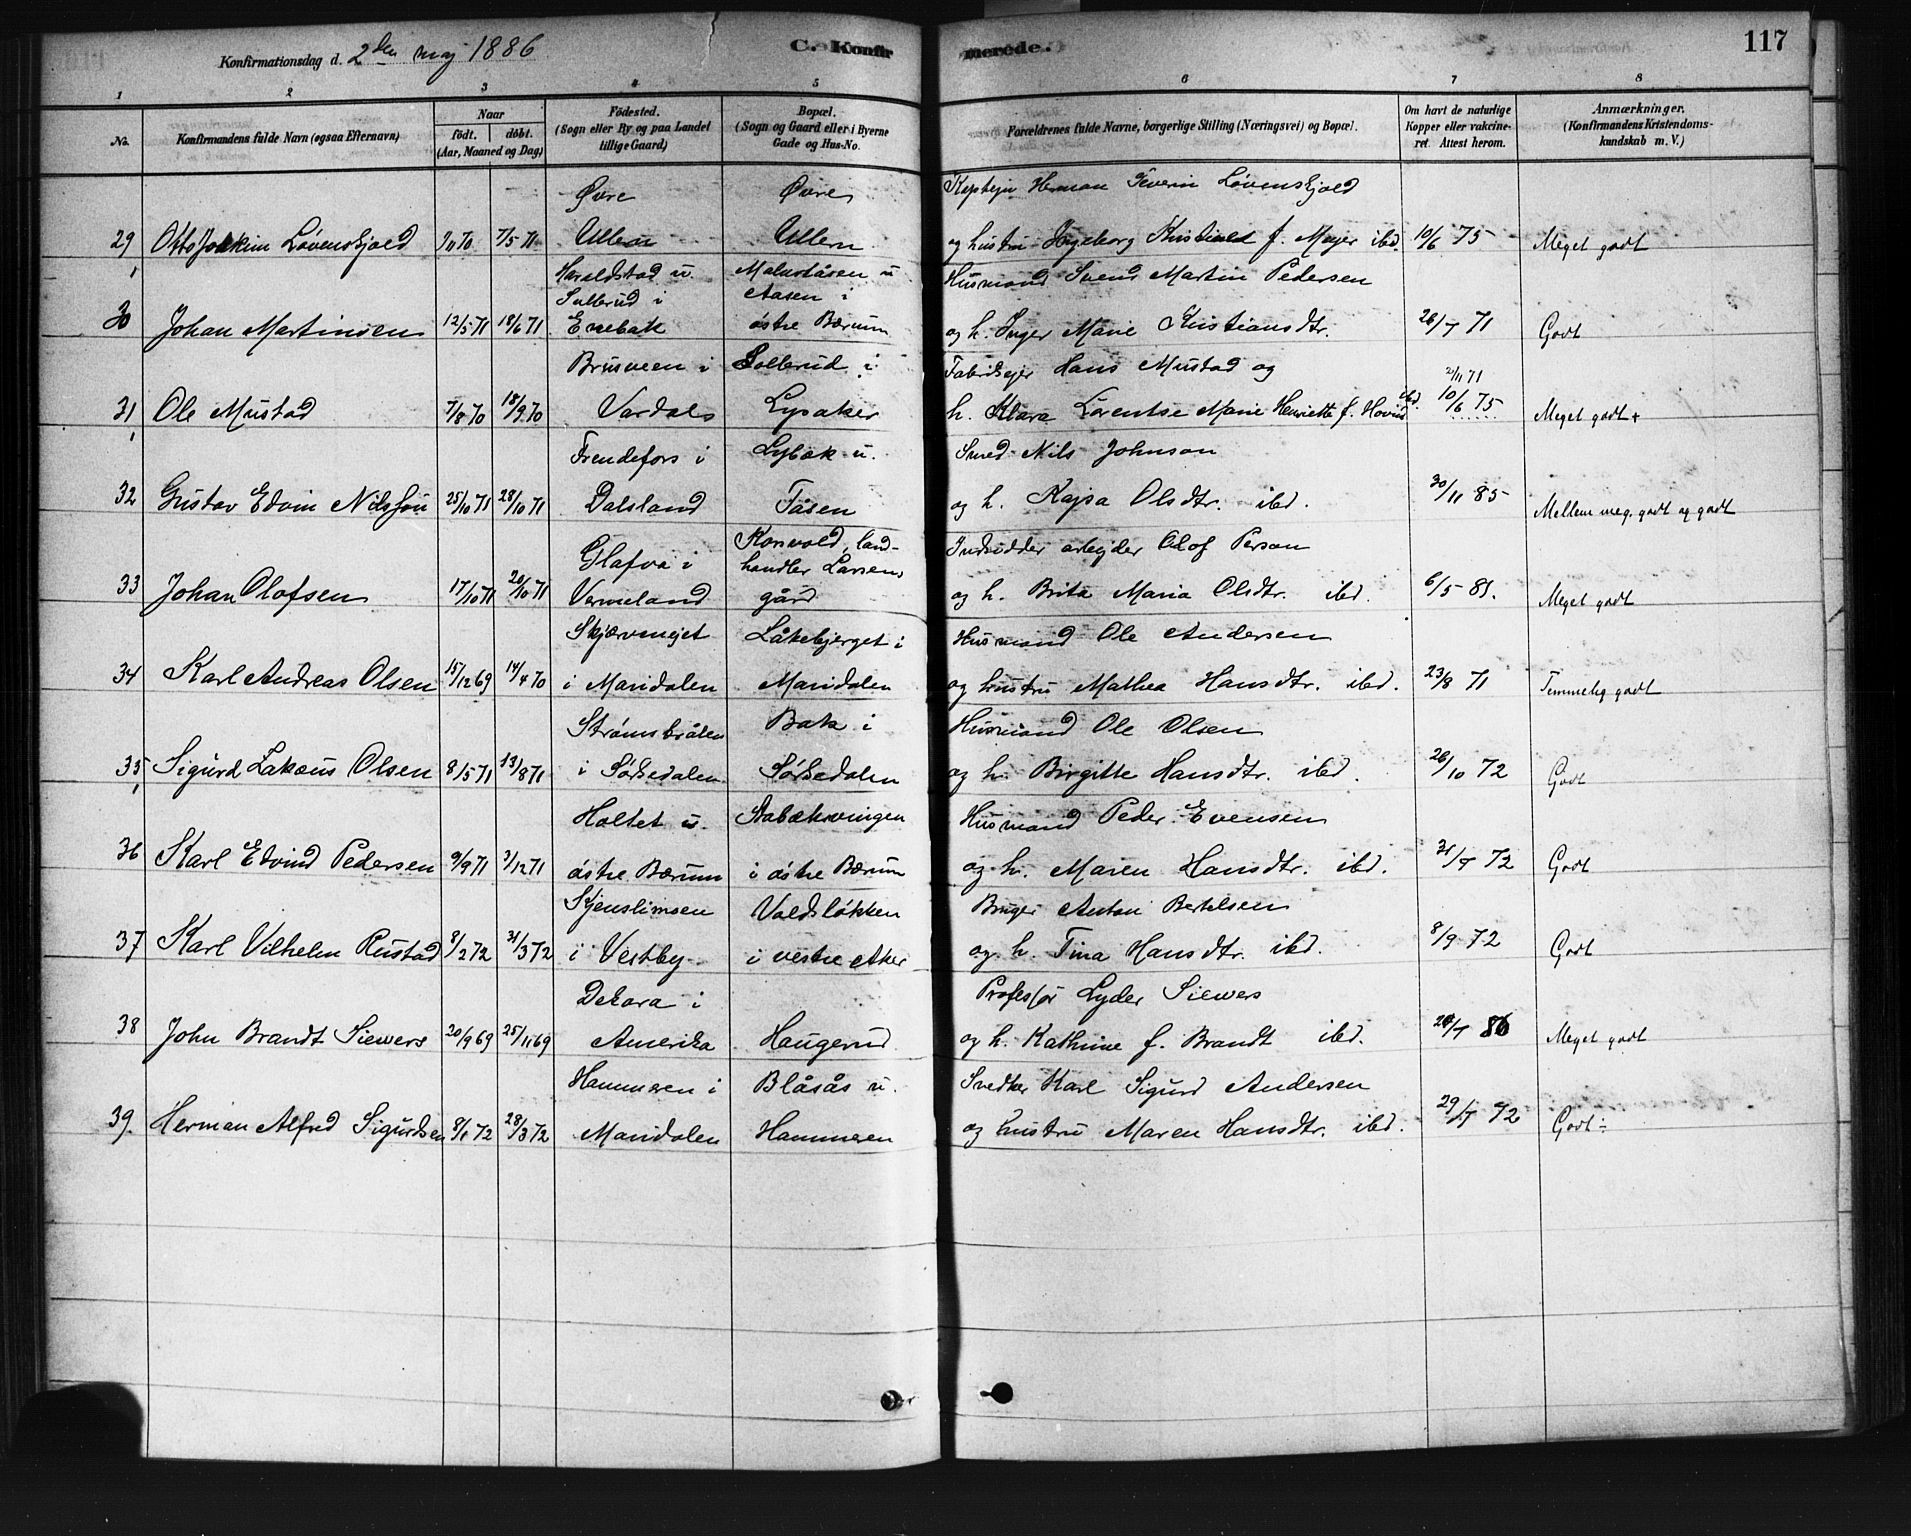 Konfirmationsdag d. 2den maj 1886
C. Konfirmerede.
117
1 2 3 4 5 6 7 8
No.
Konfirmandens fulde Navn (ogsaa Efternavn)
Naar
født. døbt.
(Aar, Maaned og Dag)
Fødested.
(Sogn eller By og paa Landet
tillige Gaard)
Bopæl.
(Sogn og Gaard eller i Byerne
Gade og Hus-No.
Forældrenes fulde Navne, borgerlige Stilling (Næringsvei) og Bopæl.
Om havt de naturlige
Kopper eller vakcine-
ret. Attest herom.
Anmærkninger.
(Konfirmandens Kristendoms-
kundskab m. V.)
Øvre Øvre Kaptejn Herman Severin Løvenskjold
29 Otto Joakim Løvenskjold 7/5 71 Ullern Ullern og hustru Ingeborg f. Mejer ibd. 10/6 75 Meget godt
Haraldstad u. u Husmand Svend Martin Pedersen
i Aasen i
30 Johan Martinsen 12/5 71 18/6 71 Enebak østre Bærum og h. Inger Marie Kristiansdtr. 71 Godt
Brusveen i Sollerud i Fabrikejer Hans Mustad og 21/11 71
31 Ole Mustad 7/8 70 18/9 70 Vardals Lysaker h. Klara Lorentse Marie Henriette f. Hovind ibd. 10/6 75 Meget godt +
Frendefors i Lybæk u. Smed Nils Johnson
32 Gustav Edvin Nilsson 25/10 71 28/10 71 Dalsland Tåsen og h. Kajsa Olsdtr. ibd. 30/11 85 Mellem meg. godt og godt
Glafva i Korsvold, land- Indsidder arbejder Olof Person
handler Larsens
33 Johan Olofsen 17/10 71 20/10 71 Vermeland gård og h. Brita Maria Olsdtr. ibd. 6/5 81. Meget godt
Skjærvenejet Låkebjerget i Husmand Ole Andersen
34 Karl Andreas Olsen 15/12 69 14/4 70 i Maridalen Maridalen og hustru Mathea Hansdtr. ibd. 23/8 71 Temmelig godt
Strømsbråten Bak i Husmand Ole Olsen
35 Sigurd Lakæus Olsen 8/5 71 13/8 71 i Sørkedalen Sørkedalen og h. Birgitte Hansdtr. ibd. 26/10 72 Godt
Holtet u. Stabækvingen Husmand Peder Evensen
36 Karl Edvind Pedersen 9/9 71 3/12 71 østre Bærum i østre Bærum og h. Maren Hansdtr. ibd. 72 Godt
Skjenslimoen Valdsløkken Bruger Anton Bertelsen
37 Karl Vilhelm Rustad 8/2 72 31/3 72 i Vestby i vestre Aker og h. Tina Hansdtr. ibd. 8/9 72 Godt
Dekora i Professor Lyder Siewers
38 John Brandt Siewers 20/9 69 25/11 69 Amerika Haugerud og h. Kathrine f. Brandt ibd. 86 Meget godt
Hammeren i Blåsås u. Svedker Karl Sigurd Andersen
39. Herman Alfred Sigurdsen 8/1 72 28/3 72 Maridalen Hammeren og hustru Maren Hansdtr. ibd. 72 Godt ÷